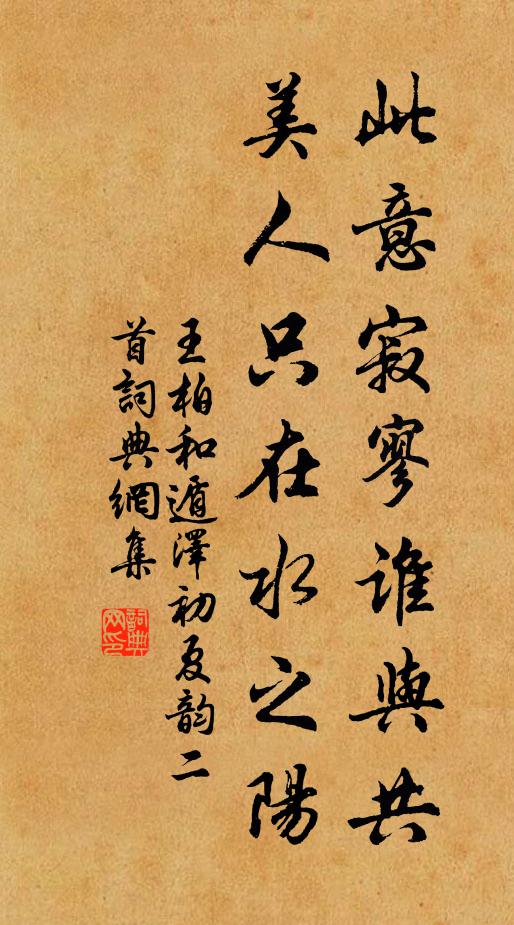 此意寂寥誰與共
美人只在水之陽
王柏和遁澤初夏韵二
首詞典網集
詞典網印